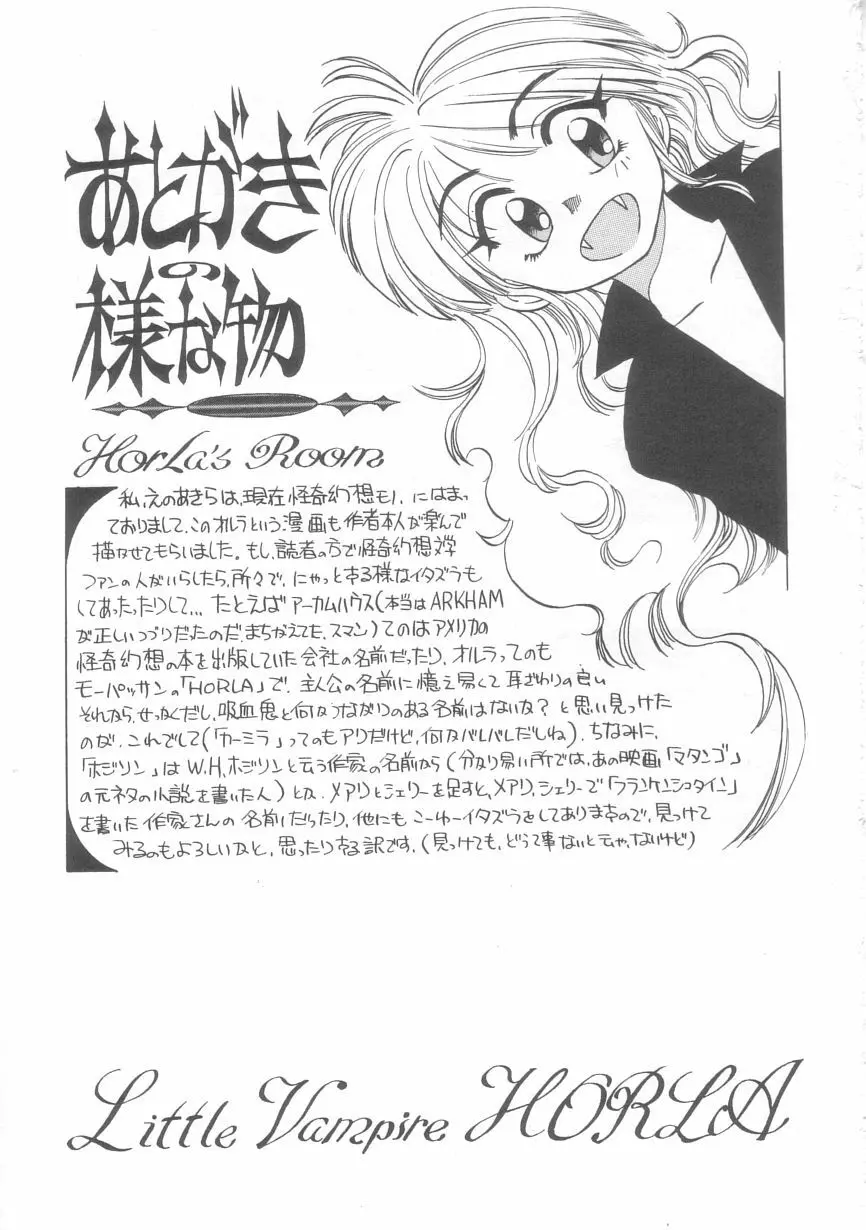 あとがき
の
様な物
HorLa's Room
私、えのあきらは、現在怪奇幻想モノ、にはまっ
ておりまして、このオルラという漫画も作者本人が楽んで
描かせてもらいました。もし、読者の方で怪奇幻想文学
ファンの人がいらしたら、所々で、にやっとする様なイタズラも
してあったりして… たとえばアーカムハウス(本当はARKHAM
が正しいつづりだったのだ、まちがえてた、スマン)てのはアメリカの
怪奇幻想の本を出版していた会社の名前だったり、オルラってのも
モーパッサンの「HORLA」で、主人公の名前に憶え易くて耳ざわりの良い
それなら、せっかくだし、吸血鬼と何かつながりのある名前はないか?と思い見つけた
のが、これでして(「カーミラ」ってのもアリだけど、何かバレバレだしね)。ちなみに、
「ホジソン」はW.H.ホジソンと云う作家の名前から(分かり易い所では、あの映画「マタンゴ」
の元ネタの小説を書いた人)とか、メアリとシェリーを足すと、メアリ、シェリーで「フランケンシュタイン」
を書いた作家さんの名前だったり、他にもこーゆーイタズラをしてありますので、見っけて
みるのもよろしいかと、思ったりする訳です。(見っけても、どうって事ないと云や、ないけど)
Little Vampire HORLA